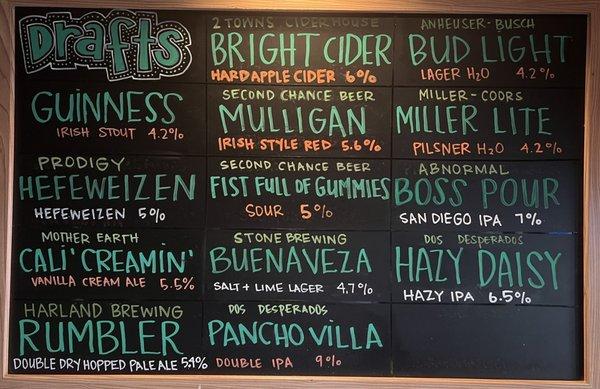 Drafts
GUINNESS
IRISH STOUT 4.2%
PRODIGY
HEFEWEIZEN
HEFEWEIZEN 5%
MOTHER EARTH
CALI' CREAMIN'
VANILLA CREAM ALE 5.5%
HARLAND BREWING
RUMBLER
DOUBLE DRY HOPPED PALE ALE 5.9%
2 TOWNS CIDERHOUSE
BRIGHT CIDER
HARD APPLE CIDER 6%
SECOND CHANCE BEER
MULLIGAN
IRISH STYLE RED 5.6%
SECOND CHANCE BEER
FIST FULL OF GUMMIES
SOUR 5%
STONE BREWING
BUENAVEZA
SALT + LIME LAGER 4.7%
DOS DESPERADOS
PANCHO VILLA
DOUBLE IPA 9%
ANHEUSER-BUSCH
BUD LIGHT
LAGER H2O 4.2%
MILLER-COORS
MILLER LITE
PILSNER H2O 4.2%
ABNORMAL
BOSS POUR
SAN DIEGO IPA 7%
DOS DESPERADOS
HAZY DAISY
HAZY IPA 6.5%